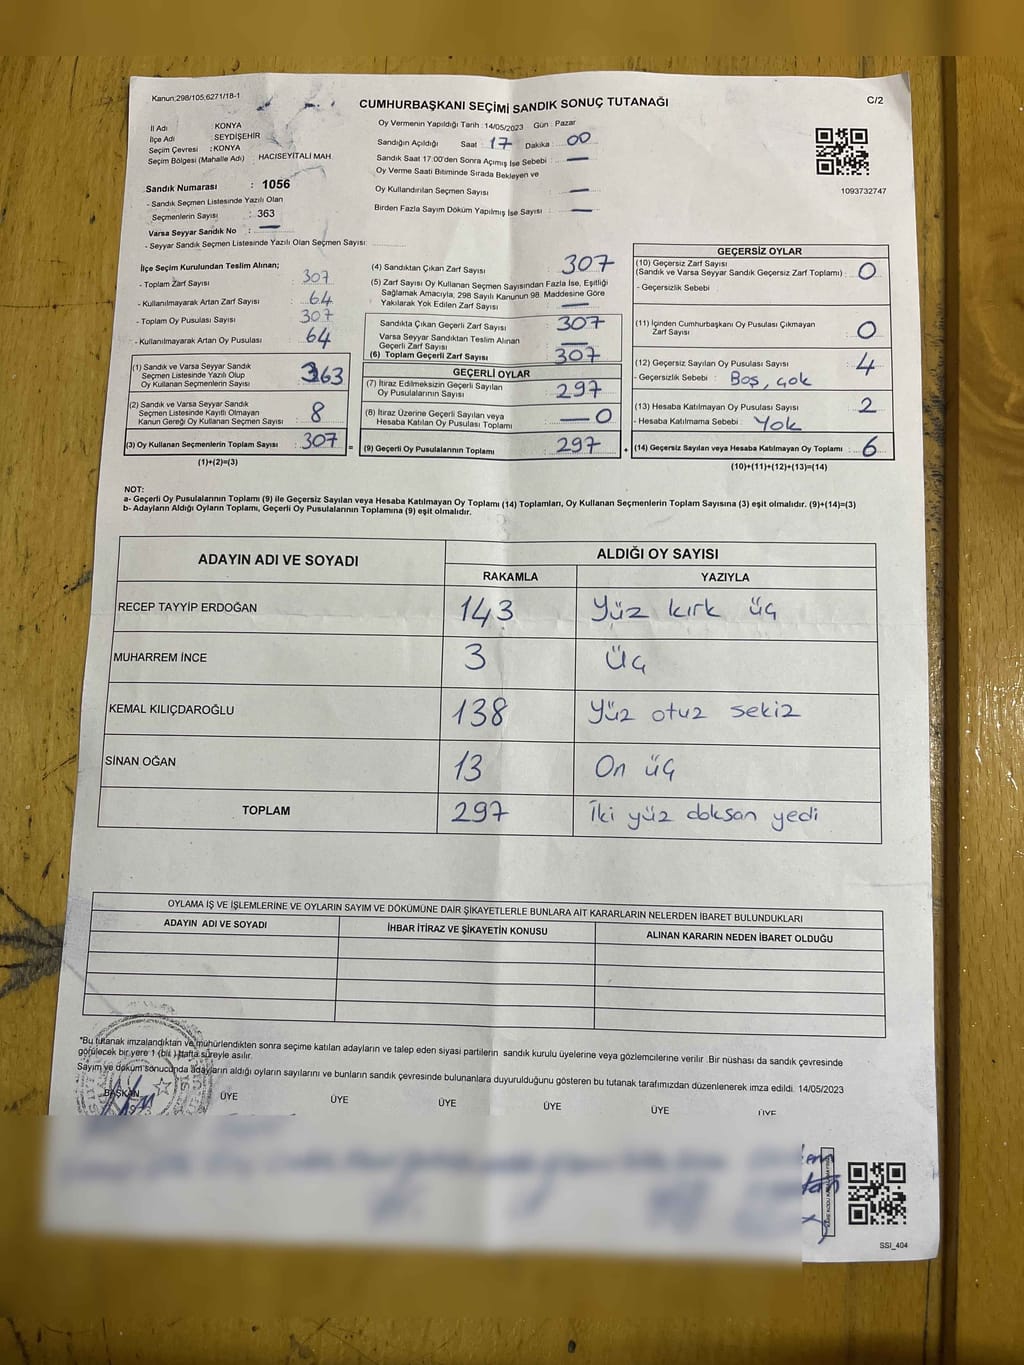 Kanun:298/105,6271/18-1
CUMHURBAŞKANI SEÇİMİ SANDIK SONUÇ TUTANAĞI
C/2
İl Adı : KONYA
İlçe Adı : SEYDİŞEHİR
Seçim Çevresi : KONYA
Seçim Bölgesi (Mahalle Adı) : HACISEYİTALİ MAH.
Sandık Numarası : 1056
- Sandık Seçmen Listesinde Yazılı Olan
Seçmenlerin Sayısı : 363
Varsa Seyyar Sandık No : —
- Seyyar Sandık Seçmen Listesinde Yazılı Olan Seçmen Sayısı:
Oy Vermenin Yapıldığı Tarih : 14/05/2023 Gün : Pazar
Sandığın Açıldığı Saat : 17 Dakika : 00
Sandık Saat 17:00'den Sonra Açımış İse Sebebi : —
Oy Verme Saati Bitiminde Sırada Bekleyen ve
Oy Kullandırılan Seçmen Sayısı : —
Birden Fazla Sayım Döküm Yapılmış İse Sayısı : —
1093732747
İlçe Seçim Kurulundan Teslim Alınan;
- Toplam Zarf Sayısı : 307
- Kullanılmayarak Artan Zarf Sayısı : 64
- Toplam Oy Pusulası Sayısı : 307
- Kullanılmayarak Artan Oy Pusulası : 64
(1) Sandık ve Varsa Seyyar Sandık
Seçmen Listesinde Yazılı Olup
Oy Kullanan Seçmenlerin Sayısı : 363
(2) Sandık ve Varsa Seyyar Sandık
Seçmen Listesinde Kayıtlı Olmayan
Kanun Gereği Oy Kullanan Seçmen Sayısı : 8
(3) Oy Kullanan Seçmenlerin Toplam Sayısı : 307 =
(1)+(2)=(3)
(4) Sandıktan Çıkan Zarf Sayısı : 307
(5) Zarf Sayısı Oy Kullanan Seçmen Sayısından Fazla İse, Eşitliği
Sağlamak Amacıyla, 298 Sayılı Kanunun 98. Maddesine Göre
Yakılarak Yok Edilen Zarf Sayısı : —
Sandıkta Çıkan Geçerli Zarf Sayısı : 307
Varsa Seyyar Sandıktan Teslim Alınan
Geçerli Zarf Sayısı : —
(6) Toplam Geçerli Zarf Sayısı : 307
GEÇERLİ OYLAR
(7) İtiraz Edilmeksizin Geçerli Sayılan
Oy Pusulalarının Sayısı : 297
(8) İtiraz Üzerine Geçerli Sayılan veya
Hesaba Katılan Oy Pusulası Toplamı : — 0
(9) Geçerli Oy Pusulalarının Toplamı : 297
GEÇERSİZ OYLAR
(10) Geçersiz Zarf Sayısı
(Sandık ve Varsa Seyyar Sandık Geçersiz Zarf Toplamı) : 0
- Geçersizlik Sebebi :
(11) İçinden Cumhurbaşkanı Oy Pusulası Çıkmayan
Zarf Sayısı : 0
(12) Geçersiz Sayılan Oy Pusulası Sayısı : 4
- Geçersizlik Sebebi : Boş, çok
(13) Hesaba Katılmayan Oy Pusulası Sayısı : 2
- Hesaba Katılmama Sebebi : Yok
(14) Geçersiz Sayılan veya Hesaba Katılmayan Oy Toplamı : 6
(10)+(11)+(12)+(13)=(14)
NOT:
a- Geçerli Oy Pusulalarının Toplamı (9) ile Geçersiz Sayılan veya Hesaba Katılmayan Oy Toplamı (14) Toplamları, Oy Kullanan Seçmenlerin Toplam Sayısına (3) eşit olmalıdır. (9)+(14)=(3)
b- Adayların Aldığı Oyların Toplamı, Geçerli Oy Pusulalarının Toplamına (9) eşit olmalıdır.
ADAYIN ADI VE SOYADI
ALDIĞI OY SAYISI
RAKAMLA YAZIYLA
RECEP TAYYİP ERDOĞAN 143 Yüz kırk üç
MUHARREM İNCE 3 Üç
KEMAL KILIÇDAROĞLU 138 Yüz otuz sekiz
SİNAN OĞAN 13 On üç
TOPLAM 297 İki yüz doksan yedi
OYLAMA İŞ VE İŞLEMLERİNE VE OYLARIN SAYIM VE DÖKÜMÜNE DAİR ŞİKAYETLERLE BUNLARA AİT KARARLARIN NELERDEN İBARET BULUNDUKLARI
ADAYIN ADI VE SOYADI İHBAR İTİRAZ VE ŞİKAYETİN KONUSU ALINAN KARARIN NEDEN İBARET OLDUĞU
*Bu tutanak imzalandıktan ve mühürlendikten sonra seçime katılan adayların ve talep eden siyasi partilerin sandık kurulu üyelerine veya gözlemcilerine verilir .Bir nüshası da sandık çevresinde
görülecek bir yere 1 (bir) hafta süreyle asılır.
Sayım ve döküm sonucunda adayların aldığı oyların sayılarını ve bunların sandık çevresinde bulunanlara duyurulduğunu gösteren bu tutanak tarafımızdan düzenlenerek imza edildi. 14/05/2023
BAŞKAN ÜYE ÜYE ÜYE ÜYE ÜYE ÜYE
SSI_404